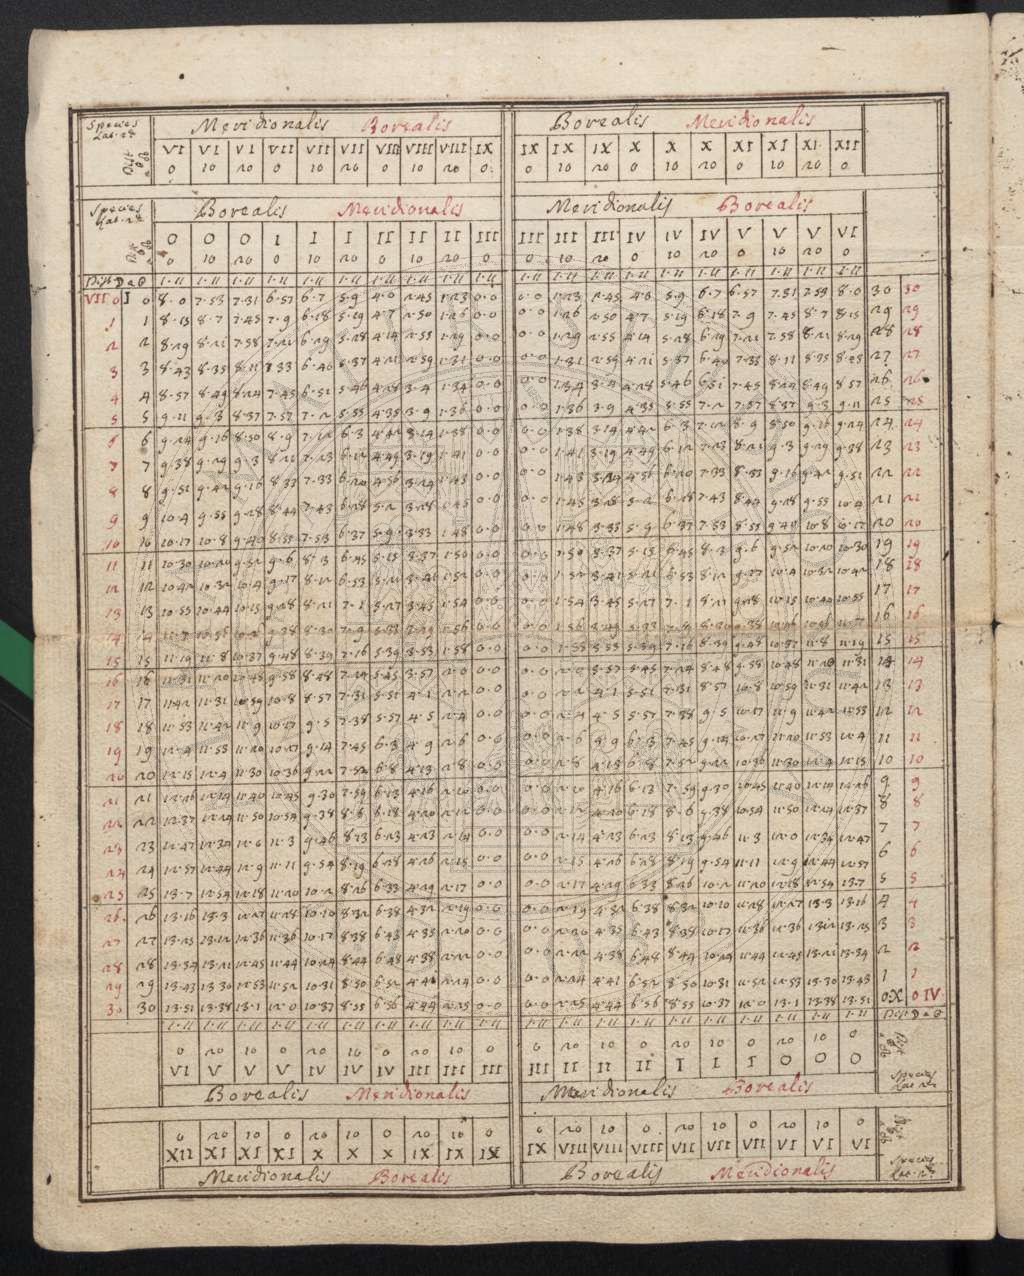 Species Meridionalis Borealis Borealis Meridionalis
VI VI VI VII VII VII VIII VIII VIII IX IX IX IX X X X XI XI XI XII
0 10 20 0 10 20 0 10 20 0 0 10 20 0 10 20 0 10 20 0
Species Borealis Meridionalis Meridionalis Borealis
0 0 0 I I I II II II III III III III IV IV IV V V V VI
0 10 20 0 10 20 0 10 20 0 0 10 20 0 10 20 0 10 20 0
VII 0 I 0 8·0 7·53 7·31 6·57 6·7 5·9 4·0 2·45 1·23 0·0 0·0 1·23 2·45 4·0 5·9 6·7 6·57 7·31 7·53 8·0 30 30
1 1 8·15 8·7 7·45 7·9 6·18 5·19 4·7 2·50 1·26 0·0 0·0 1·26 2·50 4·7 5·19 6·18 7·9 7·45 8·7 8·15 29 29
2 2 8·29 8·21 7·58 7·21 6·29 5·28 4·14 2·55 1·29 0·0 0·0 1·29 2·55 4·14 5·28 6·29 7·21 7·58 8·21 8·29 28 28
3 3 8·43 8·35 8·11 7·33 6·40 5·37 4·21 2·59 1·31 0·0 0·0 1·31 2·59 4·21 5·37 6·40 7·33 8·11 8·35 27 27
4 4 8·57 8·49 8·24 7·45 6·51 5·46 4·28 3·4 1·34 0·0 0·0 1·34 3·4 4·28 5·46 6·51 7·45 8·24 8·49 8·57 26 26
5 5 9·11 9·3 8·37 7·57 7·2 5·55 4·35 3·9 1·36 0·0 0·0 1·36 3·9 4·35 5·55 7·2 7·57 8·37 9·3 9·11 25 25
6 6 9·24 9·16 8·50 8·9 7·12 6·3 4·42 3·14 1·38 0·0 0·0 1·38 6·3 7·12 8·9 8·50 9·16 9·24 24 24
7 7 9·38 9·29 9·3 8·21 7·23 6·12 4·49 3·19 1·41 0·0 0·0 1·41 3·19 4·49 6·12 7·23 8·21 9·3 9·29 9·38 23 23
8 8 9·51 9·42 9·16 8·33 7·33 6·20 4·56 3·24 1·43 0·0 0·0 1·43 3·24 4·56 6·20 7·33 8·33 9·16 9·42 9·51 22 22
9 9 10·4 9·55 9·28 8·44 7·43 6·28 5·2 3·28 0·0 0·0 1·45 3·28 5·2 6·28 7·43 8·44 9·28 9·55 10·4 21 21
10 10 10·17 10·8 9·40 8·55 7·53 6·37 5·9 3·33 1·48 0·0 0·0 1·48 3·33 5·9 6·37 7·53 8·55 9·40 10·8 10·17 20 20
11 11 10·30 10·20 9·52 9·6 8·3 6·45 5·15 3·37 1·50 0·0 0·0 1·50 3·37 5·15 6·45 8·3 9·6 9·52 10·20 10·30 19 19
12 12 10·42 10·32 10·4 9·17 8·12 6·53 5·21 3·41 1·52 0·0 0·0 1·52 3·41 5·21 6·53 8·12 9·17 10·4 10·32 10·42 18 18
13 13 10·55 10·44 10·15 9·28 8·21 7·1 5·27 3·45 1·54 0·0 0·0 1·54 3·45 5·27 7·1 8·21 9·28 10·15 10·44 10·55 17 17
14 14 11·7 10·56 10·26 9·38 8·30 7·9 5·33 3·49 1·56 0·0 0·0 1·56 3·49 5·33 7·9 8·30 9·38 10·26 10·56 11·7 16 16
15 15 11·19 11·8 10·37 9·48 8·39 7·16 5·39 3·53 1·58 0·0 0·0 3·53 5·39 7·16 8·39 9·48 10·37 11·8 11·19 15 15
16 16 11·31 11·20 10·48 9·58 8·48 7·24 5·45 3·57 2·0 0·0 0·0 2·0 3·57 5·45 7·24 8·48 9·58 10·48 11·20 11·31 14 14
17 17 11·42 11·31 10·59 10·8 8·57 7·31 5·51 4·1 2·2 0·0 0·0 2·2 4·1 5·51 7·31 8·57 10·8 10·59 11·31 11·42 13 13
18 18 11·53 11·42 11·9 10·17 9·5 7·38 5·57 4·5 2·4 0·0 0·0 2·4 4·5 5·57 7·38 9·5 10·17 11·9 11·42 11·53 12 12
19 19 12·4 11·53 11·20 10·27 9·14 7·45 6·3 4·9 2·6 0·0 0·0 2·6 6·3 7·45 9·14 10·27 11·20 11·53 12·4 11 11
20 20 12·15 12·4 11·30 10·36 9·22 7·52 6·8 4·13 2·8 0·0 0·0 2·8 4·13 6·8 7·52 9·22 10·36 11·30 12·4 12·15 10 10
21 21 12·26 12·14 11·40 10·45 9·30 7·59 6·13 4·16 2·10 0·0 0·0 2·10 4·16 6·13 7·59 9·30 10·45 11·40 12·14 12·26 9 9
22 22 12·37 12·24 11·50 10·54 9·38 8·6 6·18 4·20 2·12 0·0 0·0 2·12 4·20 6·18 8·6 9·38 10·54 11·50 12·24 12·37 8 8
23 23 12·47 12·34 12·0 11·3 9·46 8·13 6·23 4·23 2·14 0·0 0·0 2·14 4·23 6·23 8·13 9·46 11·3 12·0 12·34 12·47 7 7
24 24 12·57 12·44 12·9 11·11 9·54 8·19 6·28 4·26 2·15 0·0 0·0 2·15 4·26 6·28 8·19 9·54 11·11 12·9 12·44 12·57 6 6
25 25 13·7 12·54 12·18 11·20 10·2 8·26 6·33 4·29 2·17 0·0 0·0 2·17 4·29 6·33 8·26 10·2 11·20 12·18 12·54 13·7 5 5
26 26 13·16 13·3 12·27 11·28 10·10 8·32 6·38 4·32 2·19 0·0 0·0 2·19 4·32 6·38 8·32 10·10 11·28 12·27 13·3 13·16 4 4
27 27 13·25 13·12 12·36 11·36 10·17 8·38 6·43 4·35 2·20 0·0 0·0 2·20 4·35 6·43 8·38 10·17 11·36 12·36 13·12 13·25 3 3
28 28 13·34 13·21 12·45 11·44 10·24 8·44 6·48 4·38 2·22 0·0 0·0 2·22 4·38 6·48 8·44 10·24 11·44 12·45 13·21 13·34 2 2
29 29 13·43 13·30 12·53 11·52 10·31 8·50 6·52 4·41 2·24 0·0 0·0 2·24 4·41 6·52 8·50 10·31 11·52 12·53 13·30 13·43 1 1
30 30 13·51 13·38 13·1 12·0 10·37 8·55 6·56 4·44 2·25 0·0 0·0 2·25 4·44 6·56 8·55 10·37 12·0 13·1 13·38 13·51 0·X 0 IV
0 20 10 0 20 10 0 20 10 0 0 20 10 0 20 10 0 20 10 0
VI V V V IV IV IV III III III III II II II I I I 0 0 0
Borealis Meridionalis Meridionalis Borealis Species
0 20 10 0 20 10 0 20 10 0 0 20 10 0 20 10 0 20 10 0
XII XI XI XI X X X IX IX IX IX VIII VIII VIII VII VII VII VI VI VI
Meridionalis Borealis Borealis Meridionalis Species